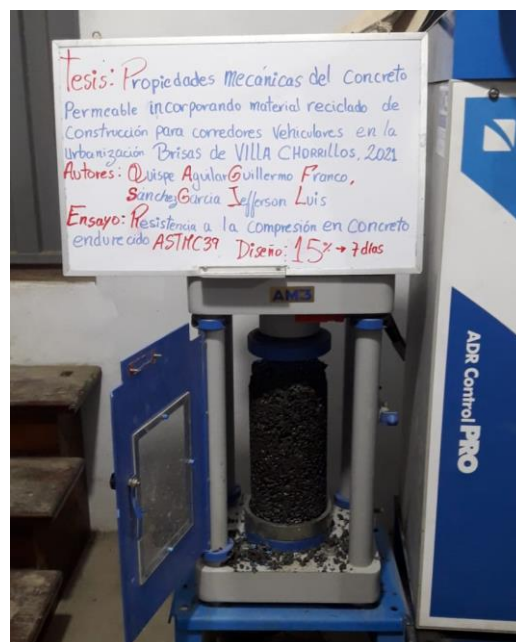 Tesis: Propiedades mecánicas del concreto
Permeable incorporando material reciclado de
Construcción para corredores Vehiculares en la
Urbanización Brisas de VILLA CHORRILLOS, 2021
Autores: Quispe Aguilar Guillermo Franco,
Sánchez Garcia Jefferson Luis
Ensayo: Resistencia a la compresión en concreto
endurecido ASTMC39 Diseño: 15% → 7 días
AM3
ADR Control PRO